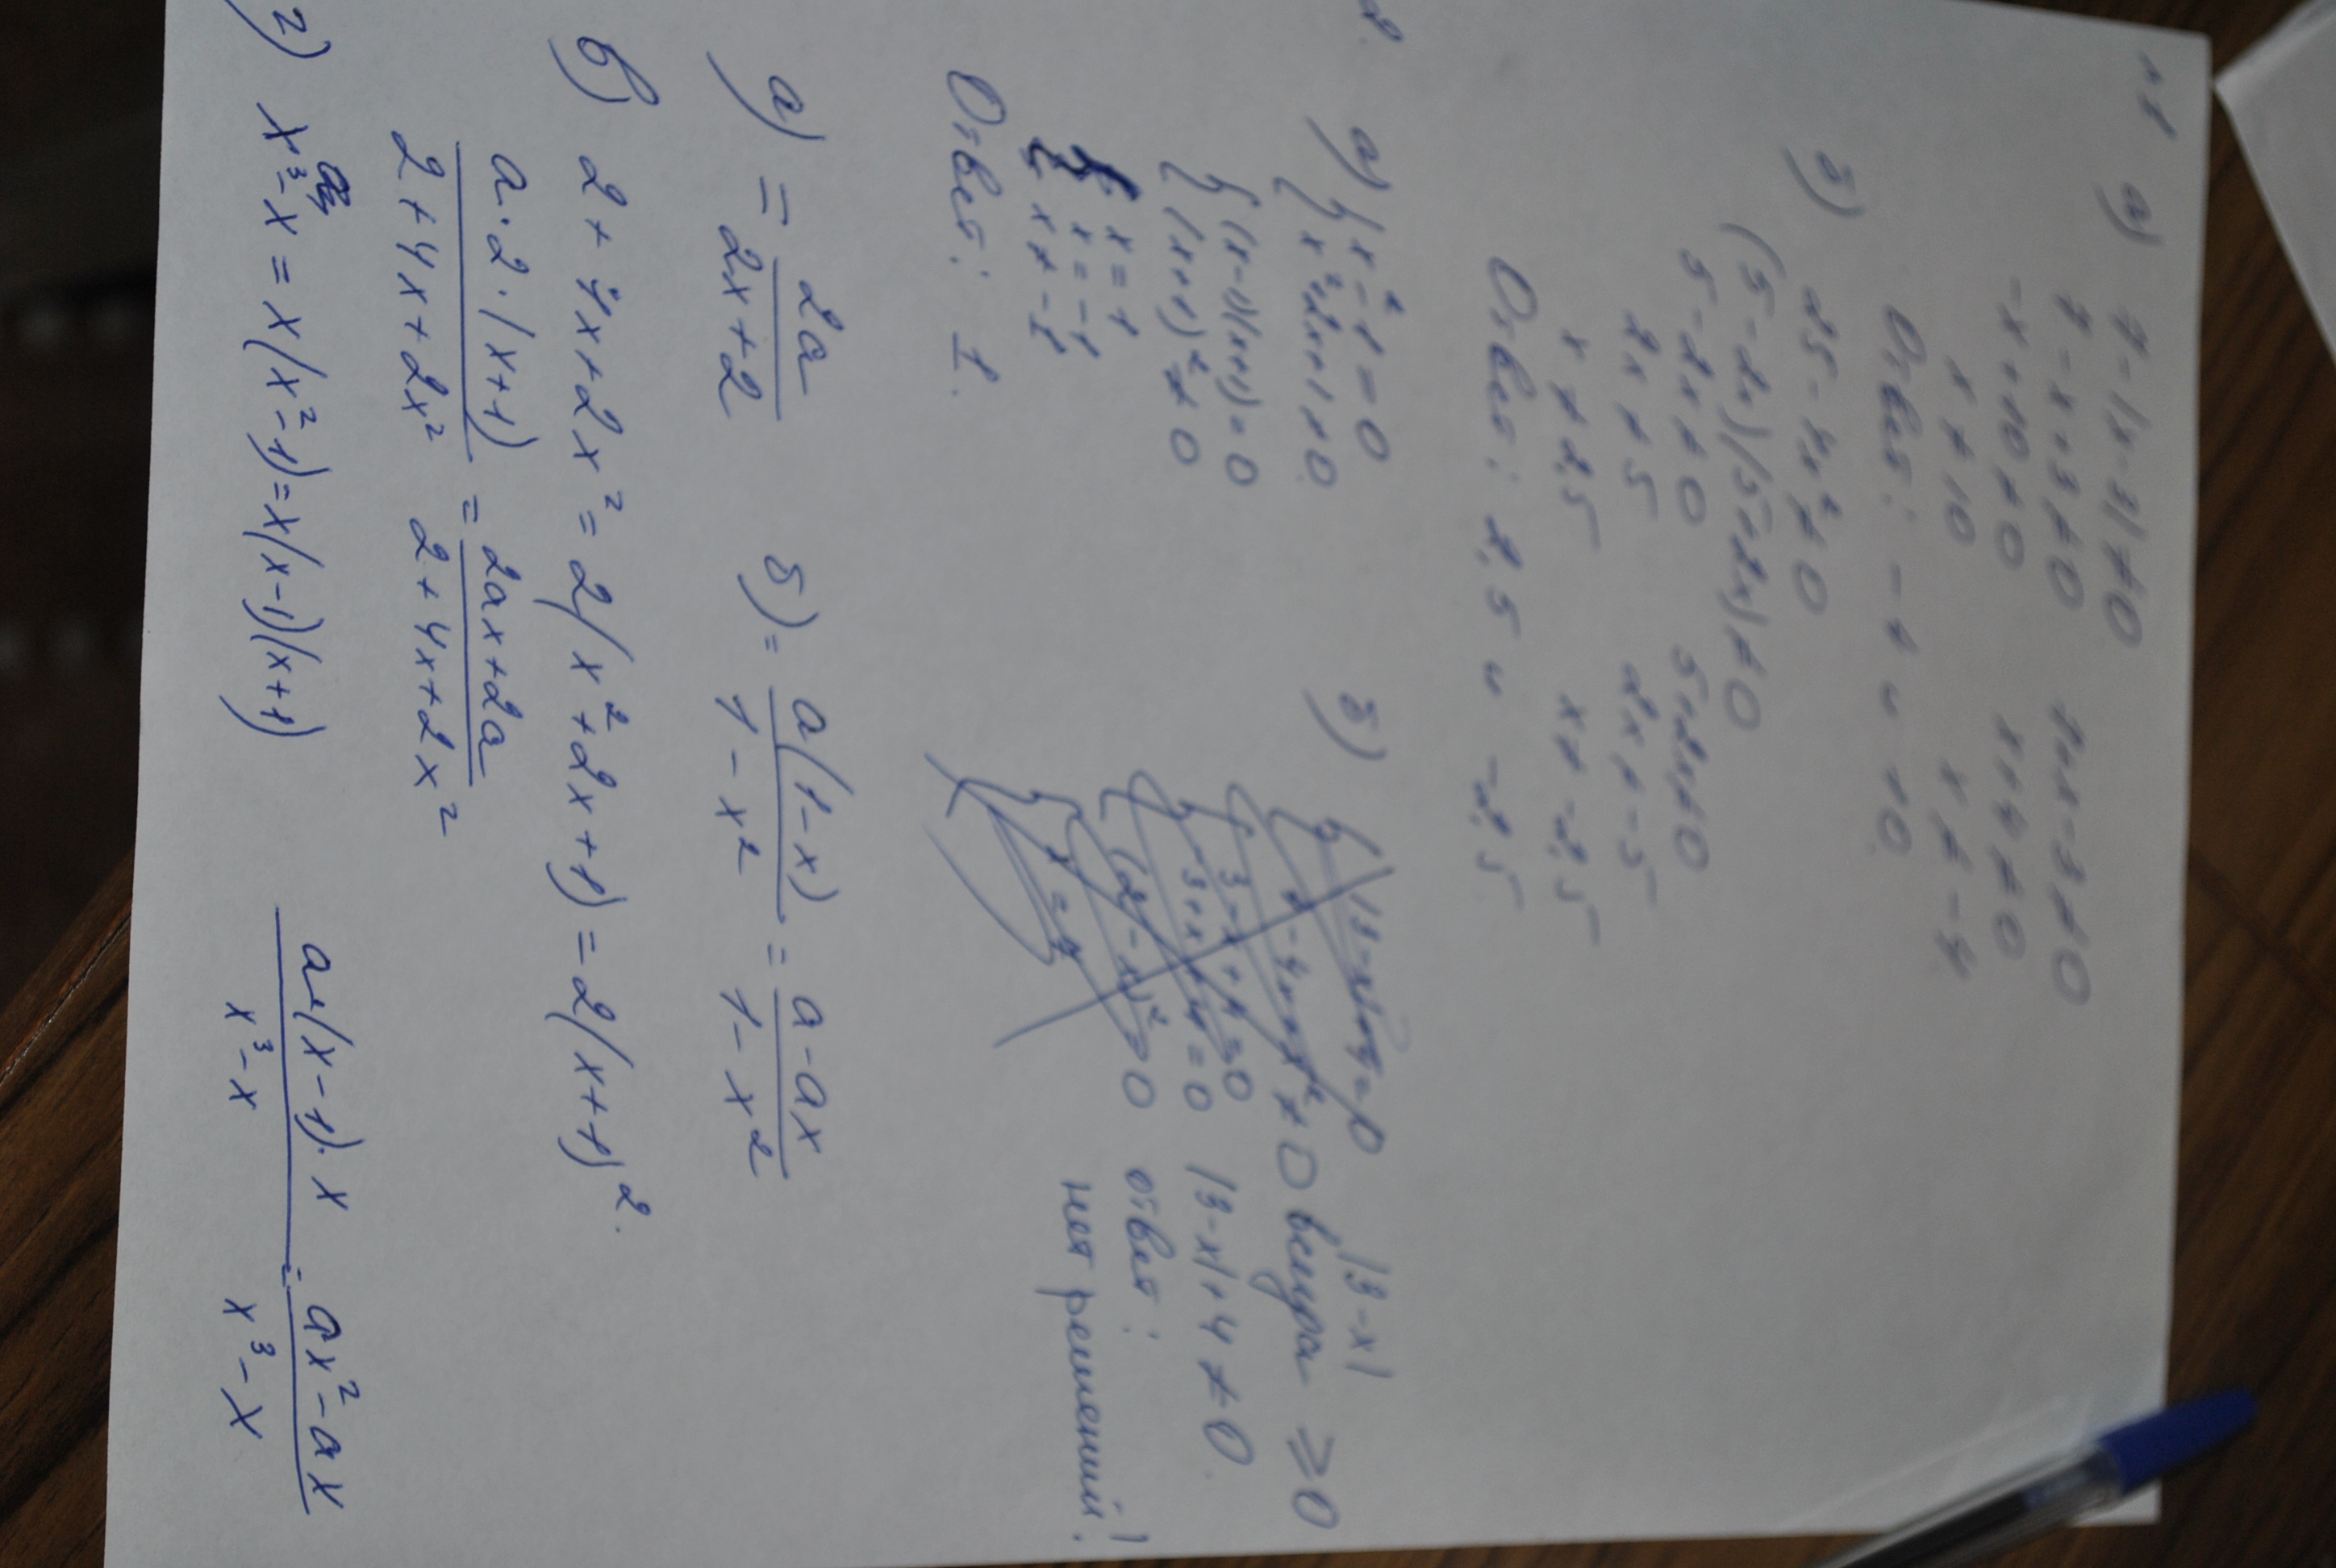 №1 а) 7-|x-3|≠0
7-x+3≠0 7+x-3≠0
-x+10≠0 x+4≠0
x≠10 x≠-4
Ответ: -4 и 10.
б) 25-4x²≠0
(5-2x)(5+2x)≠0
5-2x≠0 5+2x≠0
2x≠5 2x≠-5
x≠2,5 x≠-2,5
Ответ: 2,5 и -2,5
2.
а) { x²-1=0
{ x²+2x+1≠0
{ (x-1)(x+1)=0
(x+1)²≠0
x=1
x=-1
x≠-1
Ответ: 1.
б) |3-x|+4=0 |3-x|
всегда ≥0
|3-x|+4≠0.
ответ:
нет решений!
а) = 2a/(2x+2) б) = a(1-x)/(1-x²) = (a-ax)/(1-x²)
в) 2+4x+2x²=2(x²+2x+1)=2(x+1)².
a·2·(x+1)/(2+4x+2x²) = (2ax+2a)/(2+4x+2x²)
г) x³-x=x(x²-1)=x(x-1)(x+1) a(x-1)·x/(x³-x) = (ax²-ax)/(x³-x)